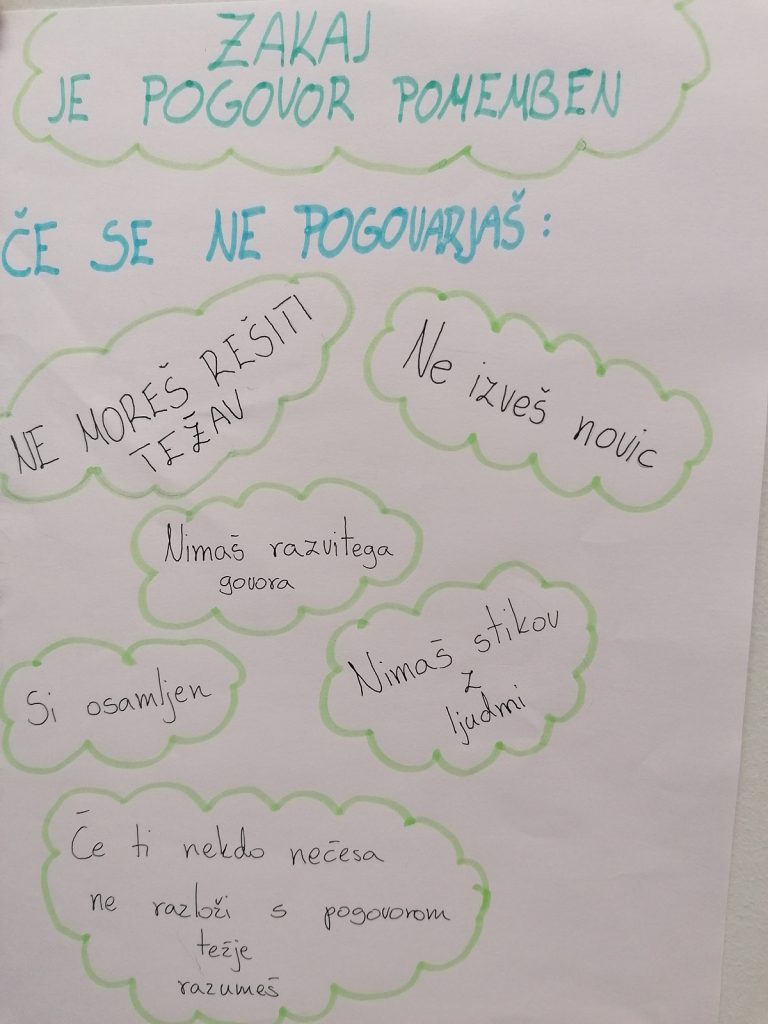 ZAKAJ
JE POGOVOR POMEMBEN
ČE SE NE POGOVARJAŠ:
NE MOREŠ REŠITI
TEŽAV
Ne izveš novic
Nimaš razvitega
govora
Nimaš stikov
z
ljudmi
Si osamljen
Če ti nekdo nečesa
ne razloži s pogovorom
težje
razumeš